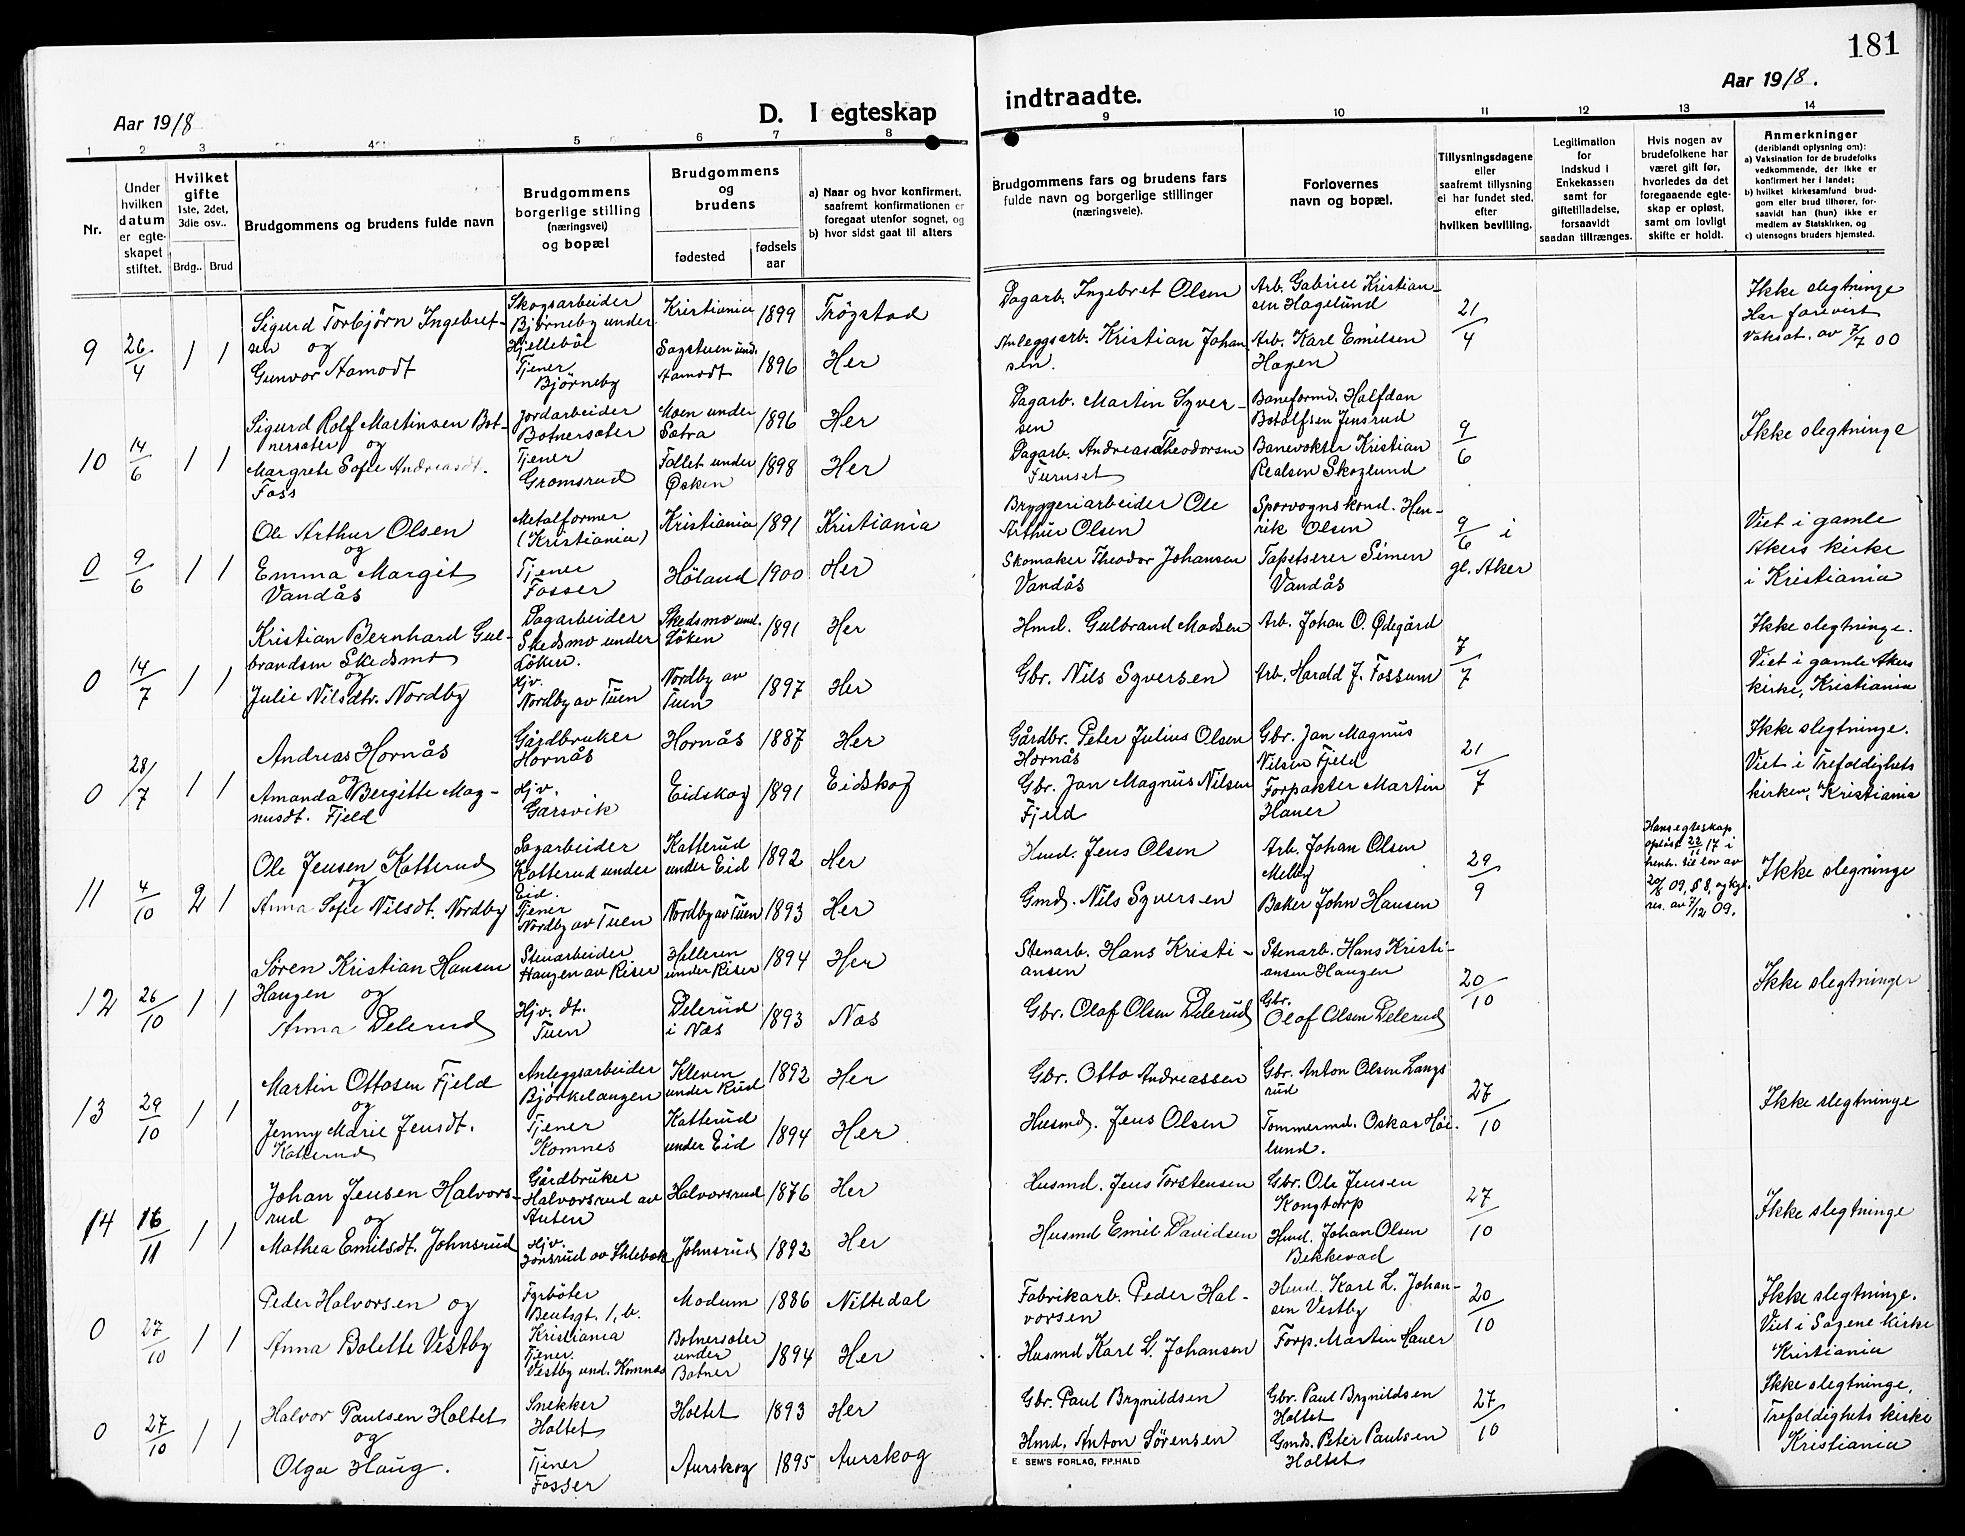 181
Aar 1918
D. I egteskap
indtraadte.
Aar 1918.
1 2 3 4 5 6 7 8
9 10 11 12 13 14
Nr.
Under
hvilken
datum
er egte-
skapet
stiftet.
Hvilket
gifte
1ste, 2det,
3die osv..
Brdg.. Brud
Brudgommens og brudens fulde navn
Brudgommens
borgerlige stilling
(næringsvei)
og bopæl
Brudgommens
og
brudens
fødested
fødsels
aar
a) Naar og hvor konfirmert,
saafremt konfirmationen er
foregaat utenfor sognet, og
b) hvor sidst gaat til alters
Brudgommens fars og brudens fars
fulde navn og borgerlige stillinger
(næringsveie).
Forlovernes
navn og bopæl.
Tillysningsdagene
eller
saafremt tillysning
ei har fundet sted,
efter
hvilken bevilling.
Legitimation
for
indskud i
Enkekassen
samt for
giftetilladelse,
forsaavidt
saadan tiltrænges.
Hvis nogen av
brudefolkene har
været gift før,
hvorledes da det
foregaaende egte-
skap er opløst,
samt om lovligt
skifte er holdt.
Anmerkninger
(deriblandt oplysning om):
a) Vaksination for de brudefolks
vedkommende, der ikke er
konfirmert her i landet;
b) hvilket kirkesamfund brud-
gom eller brud tilhører, for-
saavidt han (hun) ikke er
medlem av Statskirken, og
c) utensogns bruders hjemsted.
9 26/4 1 1
Sigurd Torbjørn Ingebret-
sen og
Gunvor Aamodt
Skogsarbeider
Bjørneby under
Hjellebøl
Tjener
Bjørneby
Kristiania 1899 Trøgstad
Sagstuen und.
Aamodt 1896 Her
Dagarb. Ingebret Olsen
Anleggsarb. Kristian Johan
sen.
Arb. Gabriel Kristian-
sen Hagelund
Arb. Karl Emilsen
Hagen
21/4
Ikke slegtninge
Har forevist
Vaksat. av 7/7 00
10 14/6 1 1
Sigurd Rolf Martinsen Bot-
nersæter og
Margrete Sofie Andreasdt.
Foss
Jordarbeider
Botnersæter
Tjener
Gromsrud
Moen under
Sætra 1896 Her
Fallet under
Øsken 1898 Her
Dagarb. Martin Syver-
sen
Dagarb. Andreas Theodorsen
Furuset
Baneformd. Halfdan
Botolfsen Jensrud
Banevokter Kristian
Realsen Skoglund
9/6
Ikke slegtninge
0 9/6 1 1
Ole Arthur Olsen
og
Emma Margit
Vandås
Metalformer
(Kristiania)
Tjener
Fosser
Kristiania 1891 Kristiania
Høland 1900 Her
Bryggeriarbeider Ole
Arthur Olsen
Skomaker Theodor Johansen
Vandås
Sporvognskond. Hen-
rik Olsen
Tapetserer Simen
Vandås
9/6 i
gl. Aker
Viet i gamle
Akers kirke
i Kristiania
0 14/7 1 1
Kristian Bernhard Gul-
brandsen Skedsmo
og
Julie Nilsdtr. Nordby
Dagarbeider
Skedsmo under
Løken.
Hjv.
Nordby av Tuen
Skedsmo und.
Løken 1891 Her
Nordby av
Tuen 1897 Her
Hmd. Gulbrand Madsen
Gbr. Nils Syversen
Arb. Johan O. Ødegård
Arb. Harald J. Fossum
7/7
Ikke slegtninge.
Viet i gamle Akers
kirke, Kristiania
0 28/7 1 1
Andreas Hornås
og
Amanda Bergitte Mag-
nusdt. Fjeld
Gårdbruker
Hornås
Hjv.
Garsvik
Hornås 1887 Her
Eidskog 1891 Eidskog
Gårdbr. Peter Julius Olsen
Hornås
Gbr. Jan Magnus Nilsen
Fjeld
Gbr. Jan Magnus
Nilsen Fjeld
Forpakter Martin
Hauer
21/7
Ikke slegtninge.
Viet i Trefoldighets
kirken, Kristiania
11 4/10 2 1
Ole Jensen Katterud
og
Anna Sofie Nilsdt. Nordby
Dagarbeider
Katterud under
Eid.
Tjener
Nordby av Tuen
Katterud
under Eid 1892 Her
Nordby av Tuen 1893 Her
Hmd. Jens Olsen
Gmd. Nils Syversen
Arb. Johan Olsen
Melby
Baker John Hansen
29/9
Hans egteskap
opløst 22/11 17 i
henh. til lov av
20/8 09, § 8, og kgl.
res. av 7/12 09.
Ikke slegninge
12 26/10 1 1
Søren Kristian Hansen
Haugen og
Anna Delerud
Stenarbeider
Haugen av Riser
Hjv. dt.
Tuen
Helleren
under Riser 1894 Her
Delerud
i Næs 1893 Næs
Stenarb. Hans Kristi-
ansen
Gbr. Olaf Olsen Delerud
Stenarb. Hans Kristi-
ansen Haugen
Gbr.
Olaf Olsen Delerud
20/10
Ikke slegtninger
13 29/10 1 1
Martin Ottosen Fjeld
og
Jenny Marie Jensdt.
Katterud
Anleggsarbeider
Bjørkelangen
Tjener
Komnes
Kleven
under Rud 1892 Her
Katterud
under Eid 1894 Her
Gbr. Otto Andreassen
Husmd. Jens Olsen
Gbr. Anton Olsen Langs
rud
Tømmermd. Oskar Høi-
lund.
27/10
Ikke slegtninge
14 16/11 1 1
Johan Jensen Halvors-
rud og
Mathea Emilsdt. Johnsrud
Gårdbruker
Halvorsrud av
Auten
Hjv.
Jonsrud av Ihlebæk
Halvorsrud 1876 Her
Johnsrud 1892 Her
Husmd. Jens Torstensen
Husmd Emil Davidsen
Gbr. Ole Jensen
Kongtorp
Hmd. Johan Olsen
Bekkevad
27/10
Ikke slegtninge
0 27/10 1 1
Peder Halvorsen og
Anna Bolette Vestby
Fyrbøter
Bentsgt. 1, b.
Kristiania
Tjener.
Vestby und. Komnæs
Modum 1886 Nittedal
Botnersæter
under
Botner 1894 Her
Fabrikarb. Peder Hal-
vorsen
Husmd Karl L. Johansen
Hmd. Karl L. Johan-
sen Vestby
Forp. Martin Hauer
20/10
Ikke slegtninge.
Viet i Sagene kirke
Kristiania
0 27/10 1 1
Halvor Paulsen Holtet
og
Olga Haug.
Snekker
Holtet
Tjener
Fosser
Holtet 1893 Her
Aurskog 1895 Aurskog
Gbr. Paul Brynildsen
Hmd. Anton Sørensen
Gbr. Paul Brynildsen
Holtet
Gmd. Peter Paulsen
Holtet
27/10
Ikke slegtninge,
Trefoldighets kirke
Kristiania
E. SEM'S FORLAG, FP.HALD